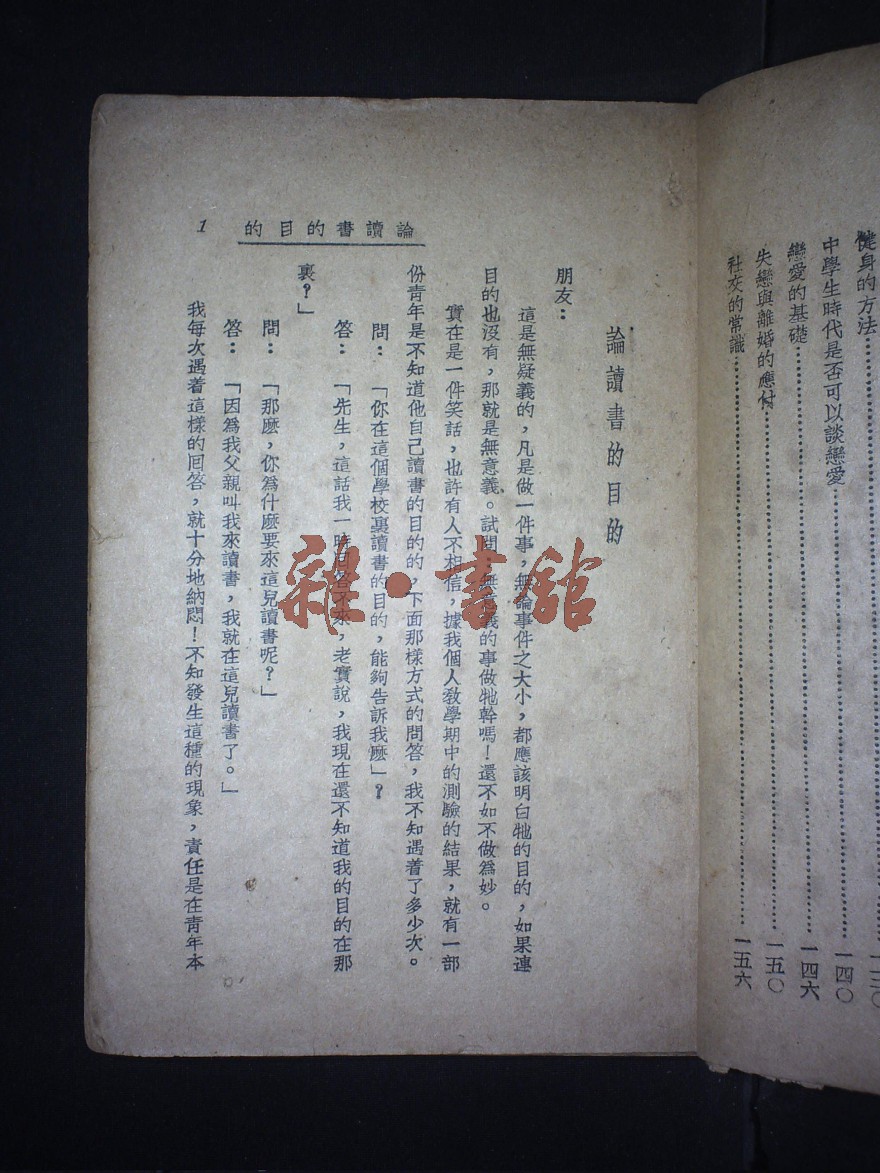 健身的方法
中學生時代是否可以談戀愛……一四〇
戀愛的基礎……一四六
失戀與離婚的應付……一五〇
社交的常識……一五六
論讀書的目的
1
論讀書的目的
朋友：
這是無疑義的，凡是做一件事，無論事件之大小，都應該明白牠的目的，如果連
目的也沒有，那就是無意義。試問：無意義的事做牠幹嗎！還不如不做爲妙。
實在是一件笑話，也許有人不相信，據我個人敎學期中的測驗的結果，就有一部
份靑年是不知道他自己讀書的目的的，下面那樣方式的問答，我不知遇着了多少次。
問：「你在這個學校裏讀書的目的，能夠告訴我麽」？
答：「先生，這話我一時回答不來，老實說，我現在還不知道我的目的在那
裏？」
問：「那麽，你爲什麽要來這兒讀書呢？」
答：「因爲我父親叫我來讀書，我就在這兒讀書了。」
我每次遇着這樣的回答，就十分地納悶！不知發生這種的現象，責任是在靑年本
雜·書館